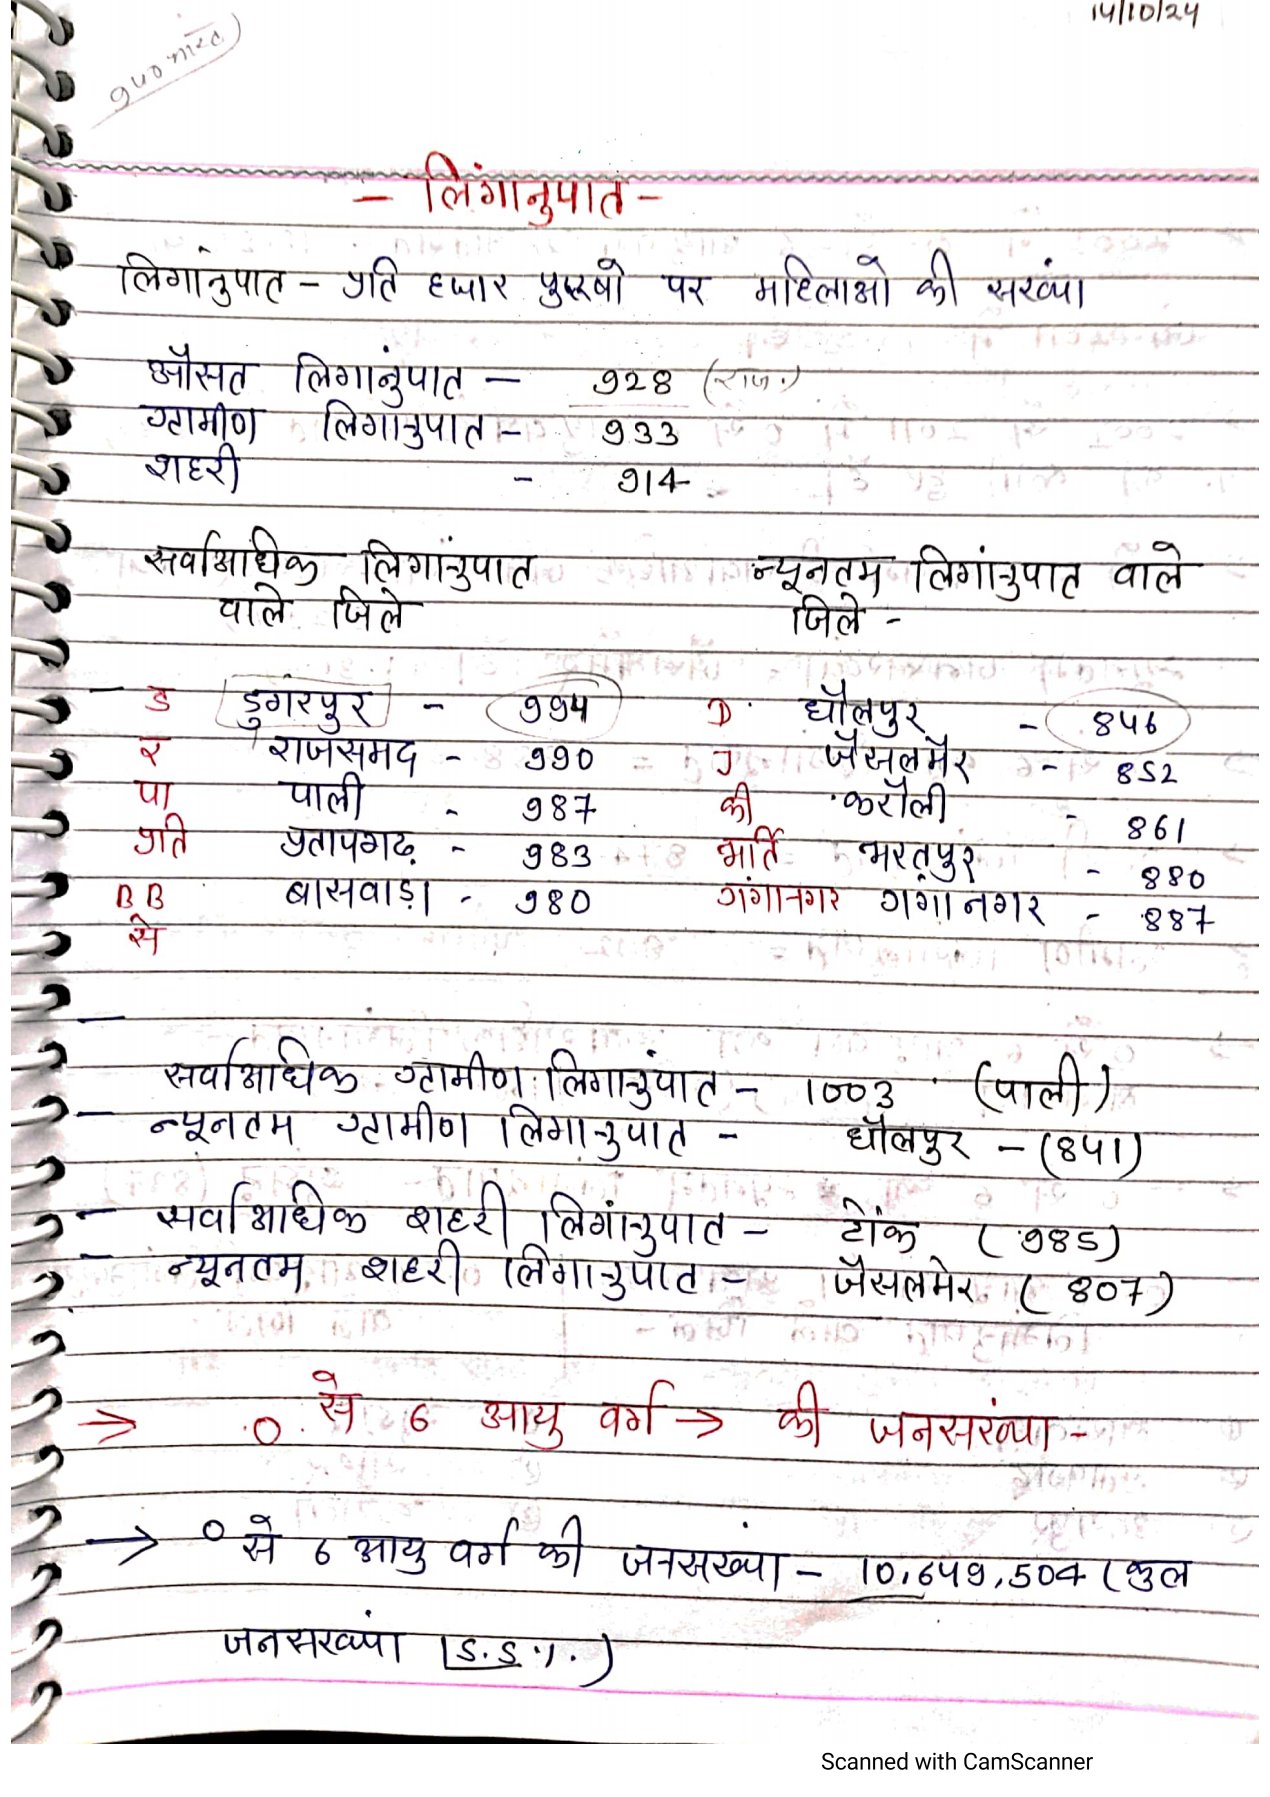 14/10/24
- लिंगानुपात -
लिगांनुपात - प्रति हजार पुरूषो पर महिलाओ की सख्यां
औसत लिगानुंपात - 928 (राज.)
ग्रामीण लिगानुपात - 933
शहरी - 914
सर्वाआधिक लिगांनुपात न्यूनतम लिगांनुपात वाले
वाले जिले जिले -
ड डुगरपुर - 994 D धौलपुर - 846
र राजसमद - 990 J जैसलमैर - 852
पा पाली - 987 की करौली - 861
प्रति प्रतापगढ़ - 983 भर्ति भरतपुर - 880
BB बासवाड़ा - 980 गंगानगर गंगानगर - 887
से
सर्वाआधिक ग्रामीण लिगानुंपात - 1003 (पाली)
न्यूनतम ग्रामीण लिगानुपात - धौलपुर - (841)
सर्वाआधिक शहरी लिगांनुपात - टोंक (985)
न्यूनतम शहरी लिगानुपात - जैसलमेर (807)
→ 0 से 6 आयु वर्ग → की जनसख्ंया -
→ 0 से 6 आयु वर्ग की जनसख्यां - 10,649,504 (कुल
जनसख्यां 15.5%.)
Scanned with CamScanner